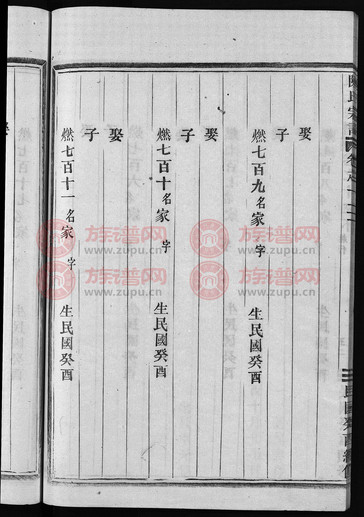 燃七百九名家 字 生民國癸酉
娶
子
燃七百十名家 字 生民國癸酉
娶
子
燃七百十一名家 字 生民國癸酉
娶
族谱网
www.zupu.cn
族谱网
www.zupu.cn
族谱网
www.zupu.cn
族谱网
www.zupu.cn